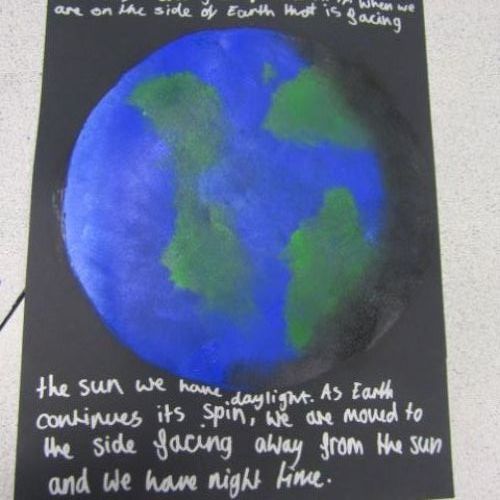 when we
are on the side of Earth that is facing
the sun we have daylight. As Earth
continues its spin, we are moved to
the side facing away from the sun
and we have night time.